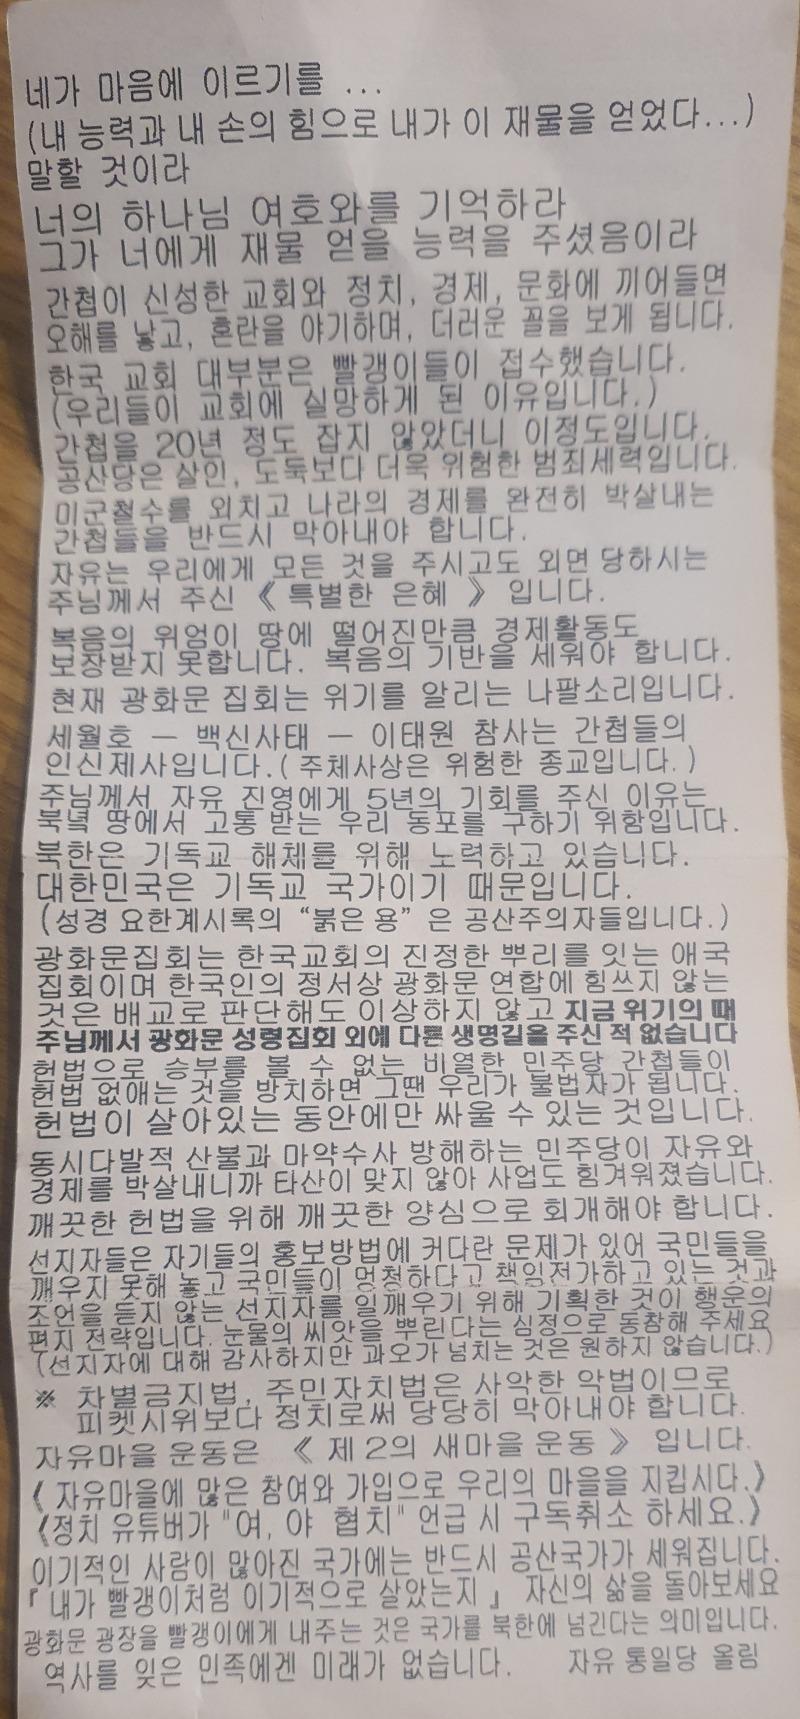 네가 마음에 이르기를 ...
(내 능력과 내 손의 힘으로 내가 이 재물을 얻었다...)
말할 것이라
너의 하나님 여호와를 기억하라
그가 너에게 재물 얻을 능력을 주셨음이라
간첩이 신성한 교회와 정치, 경제, 문화에 끼어들면
오해를 낳고, 혼란을 야기하며, 더러운 꼴을 보게 됩니다.
한국 교회 대부분은 빨갱이들이 접수했습니다.
(우리들이 교회에 실망하게 된 이유입니다.)
간첩을 20년 정도 잡지 않았더니 이정도입니다.
공산당은 살인, 도둑보다 더욱 위험한 범죄세력입니다.
미군철수를 외치고 나라의 경제를 완전히 박살내는
간첩들을 반드시 막아내야 합니다.
자유는 우리에게 모든 것을 주시고도 외면 당하시는
주님께서 주신 《 특별한 은혜 》 입니다.
복음의 위엄이 땅에 떨어진만큼 경제활동도
보장받지 못합니다. 복음의 기반을 세워야 합니다.
현재 광화문 집회는 위기를 알리는 나팔소리입니다.
세월호 - 백신사태 - 이태원 참사는 간첩들의
인신제사입니다.( 주체사상은 위험한 종교입니다. )
주님께서 자유 진영에게 5년의 기회를 주신 이유는
북녘 땅에서 고통 받는 우리 동포를 구하기 위함입니다.
북한은 기독교 해체를 위해 노력하고 있습니다.
대한민국은 기독교 국가이기 때문입니다.
(성경 요한계시록의 “붉은 용” 은 공산주의자들입니다.)
광화문집회는 한국교회의 진정한 뿌리를 잇는 애국
집회이며 한국인의 정서상 광화문 연합에 힘쓰지 않는
것은 배교로 판단해도 이상하지 않고 지금 위기의 때
주님께서 광화문 성령집회 외에 다른 생명길을 주신 적 없습니다
헌법으로 승부를 볼 수 없는 비열한 민주당 간첩들이
헌법 없애는 것을 방치하면 그땐 우리가 불법자가 됩니다.
헌법이 살아있는 동안에만 싸울 수 있는 것입니다.
동시다발적 산불과 마약수사 방해하는 민주당이 자유와
경제를 박살내니까 타산이 맞지 않아 사업도 힘겨워졌습니다.
깨끗한 헌법을 위해 깨끗한 양심으로 회개해야 합니다.
선지자들은 자기들의 홍보방법에 커다란 문제가 있어 국민들을
깨우지 못해 놓고 국민들이 멍청하다고 책임전가하고 있는 것과
조언을 듣지 않는 선지자를 일깨우기 위해 기획한 것이 행운의
편지 전략입니다. 눈물의 씨앗을 뿌린다는 심정으로 동참해 주세요
(선지자에 대해 감사하지만 과오가 넘치는 것은 원하지 않습니다.)
※ 차별금지법, 주민자치법은 사악한 악법이므로
피켓시위보다 정치로써 당당히 막아내야 합니다.
자유마을 운동은 《 제 2의 새마을 운동 》 입니다.
《 자유마을에 많은 참여와 가입으로 우리의 마을을 지킵시다.》
《정치 유튜버가 "여, 야 협치" 언급 시 구독취소 하세요.》
이기적인 사람이 많아진 국가에는 반드시 공산국가가 세워집니다.
『 내가 빨갱이처럼 이기적으로 살았는지 』 자신의 삶을 돌아보세요
광화문 광장을 빨갱이에게 내주는 것은 국가를 북한에 넘긴다는 의미입니다.
역사를 잊은 민족에겐 미래가 없습니다. 자유 통일당 올림